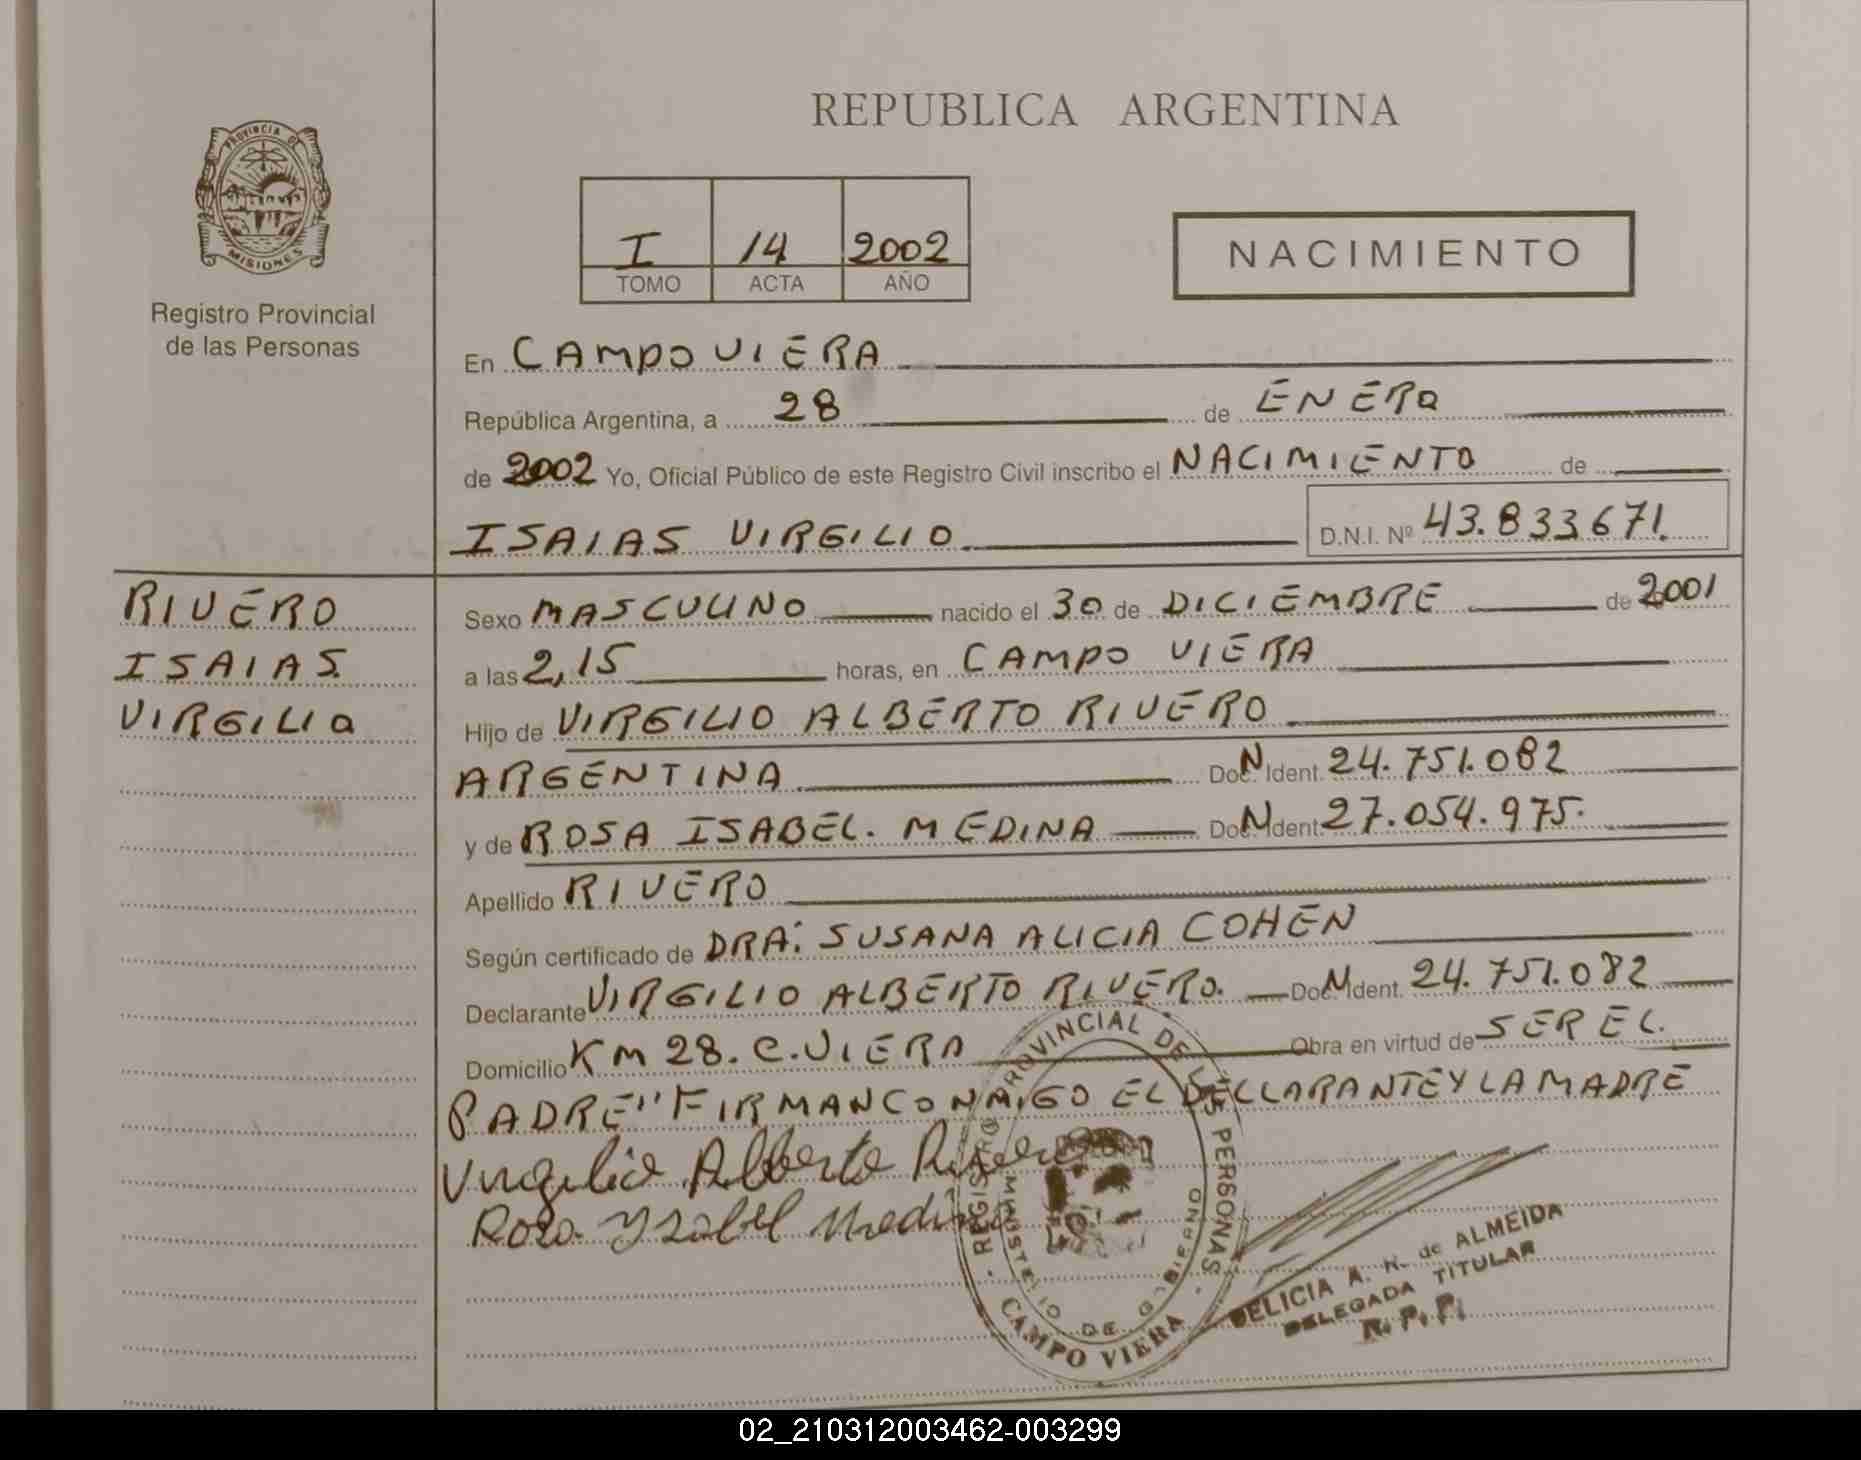 REPUBLICA ARGENTINA
PROVINCIA DE
MISIONES
Registro Provincial
de las Personas
I 14 2002
TOMO ACTA AÑO
NACIMIENTO
En CAMPO VIERA
República Argentina, a 28 de ENERO
de 2002 Yo, Oficial Público de este Registro Civil inscribo el NACIMIENTO de
ISAIAS VIRGILIO D.N.I. Nº 43.833671.
RIVERO
ISAIAS
VIRGILIO
Sexo MASCULINO nacido el 30 de DICIEMBRE de 2001
a las 2,15 horas, en CAMPO VIERA
Hijo de VIRGILIO ALBERTO RIVERO
ARGENTINA Doc. N Ident. 24.751.082
y de ROSA ISABEL. MEDINA Doc. N Ident. 27.054.975.
Apellido RIVERO
Según certificado de DRA: SUSANA ALICIA COHEN
Declarante VIRGILIO ALBERTO RIVERO. Doc. N Ident. 24.751.082
Domicilio KM 28. C. VIERA Obra en virtud de SER EL
PADRE" FIRMAN CONMIGO EL DECLARANTE Y LA MADRE
Virgilio Alberto Rivero
Rosa Ysabel Medina
REGISTRO PROVINCIAL DE LAS PERSONAS
MINISTERIO DE GOBIERNO
CAMPO VIERA
DELICIA A. N. de ALMEIDA
DELEGADA TITULAR
R. P. P.
02_210312003462-003299